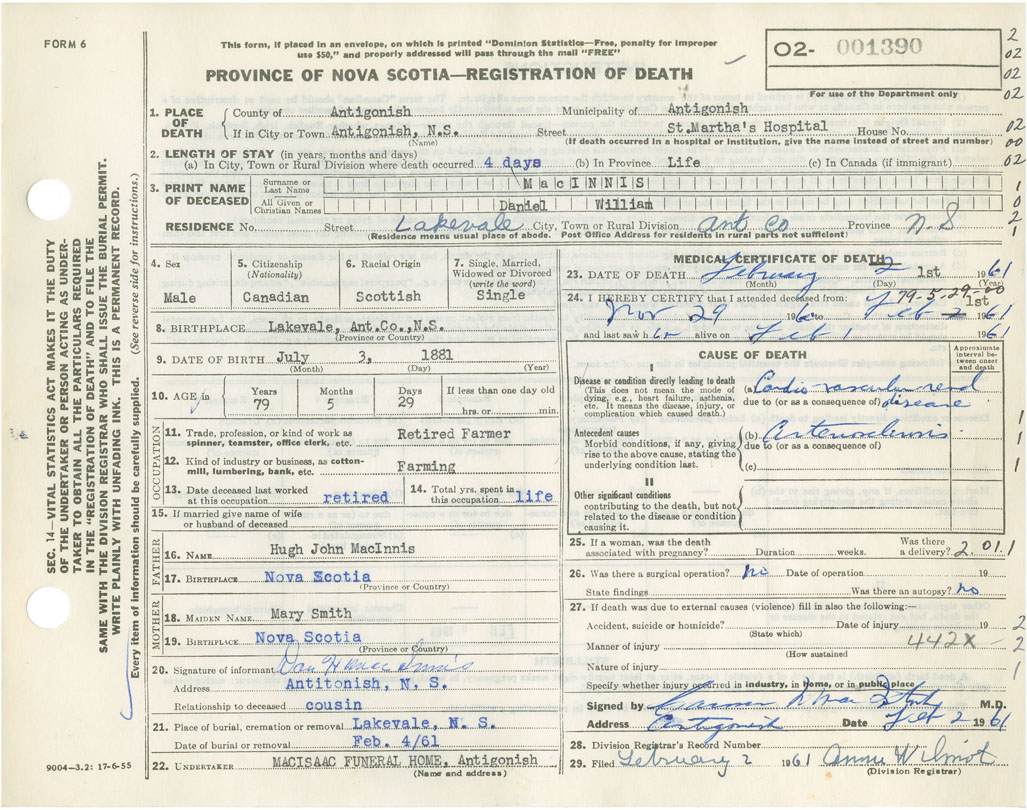 FORM 6
This form, if placed in an envelope, on which is printed "Dominion Statistics—Free, penalty for improper
use $50," and properly addressed will pass through the mail "FREE"
PROVINCE OF NOVA SCOTIA—REGISTRATION OF DEATH
02- 001390
For use of the Department only
2
02
02
02
02
00
02
1
0
2
1
SEC. 14—VITAL STATISTICS ACT MAKES IT THE DUTY
OF THE UNDERTAKER OR PERSON ACTING AS UNDER-
TAKER TO OBTAIN ALL THE PARTICULARS REQUIRED
IN THE "REGISTRATION OF DEATH" AND TO FILE THE
SAME WITH THE DIVISION REGISTRAR WHO SHALL ISSUE THE BURIAL PERMIT.
WRITE PLAINLY WITH UNFADING INK. THIS IS A PERMANENT RECORD.
Every item of information should be carefully supplied. (See reverse side for instructions.)
1. PLACE OF DEATH
County of Antigonish Municipality of Antigonish
If in City or Town Antigonish, N.S. Street St.Martha's Hospital House No.
(Name) (If death occurred in a hospital or institution, give the name instead of street and number)
2. LENGTH OF STAY (in years, months and days)
(a) In City, Town or Rural Division where death occurred 4 days (b) In Province Life (c) In Canada (if immigrant)
3. PRINT NAME OF DECEASED
Surname or Last Name MacINNIS
All Given or Christian Names Daniel William
RESIDENCE No. Street Lakevale City, Town or Rural Division Ant Co Province N.S
(Residence means usual place of abode. Post Office Address for residents in rural parts not sufficient)
4. Sex
Male
5. Citizenship
(Nationality)
Canadian
6. Racial Origin
Scottish
7. Single, Married,
Widowed or Divorced
(write the word)
Single
8. BIRTHPLACE Lakevale, Ant.Co.,N.S.
(Province or Country)
9. DATE OF BIRTH July 3, 1881
(Month) (Day) (Year)
10. AGE in
Years
79
Months
5
Days
29
If less than one day old
hrs. or min.
OCCUPATION
11. Trade, profession, or kind of work as
spinner, teamster, office clerk, etc. Retired Farmer
12. Kind of industry or business, as cotton-
mill, lumbering, bank, etc. Farming
13. Date deceased last worked
at this occupation retired
14. Total yrs. spent in
this occupation life
15. If married give name of wife
or husband of deceased
FATHER
16. NAME Hugh John MacInnis
17. BIRTHPLACE Nova Scotia
(Province or Country)
MOTHER
18. MAIDEN NAME Mary Smith
19. BIRTHPLACE Nova Scotia
(Province or Country)
20. Signature of informant Dan H MacInnis
Address Antitonish, N. S.
Relationship to deceased cousin
21. Place of burial, cremation or removal Lakevale, N. S.
Date of burial or removal Feb. 4/61
22. UNDERTAKER MACISAAC FUNERAL HOME, Antigonish
(Name and address)
9004—3.2: 17-6-55
MEDICAL CERTIFICATE OF DEATH
23. DATE OF DEATH February 2 1st 1961
(Month) (Day) (Year)
79-5-29-00
24. I HEREBY CERTIFY that I attended deceased from: 1st
Nov 29 1960 to Feb 2 1961
and last saw h im alive on Feb 1 1961
CAUSE OF DEATH
Approximate
interval be-
tween onset
and death
I
Disease or condition directly leading to death
(This does not mean the mode of
dying, e.g., heart failure, asthenia,
etc. It means the disease, injury, or
complication which caused death.)
(a) Cardio vascular renal
due to (or as a consequence of) disease
Antecedent causes
Morbid conditions, if any, giving
rise to the above cause, stating the
underlying condition last.
(b) Arteriosclerosis
due to (or as a consequence of)
(c)
II
Other significant conditions
contributing to the death, but not
related to the disease or condition
causing it.
1
1
1
25. If a woman, was the death
associated with pregnancy? Duration weeks. Was there
a delivery? 2.01.1
26. Was there a surgical operation? no Date of operation 19
State findings Was there an autopsy? no
27. If death was due to external causes (violence) fill in also the following:—
Accident, suicide or homicide? Date of injury 19 2
(State which)
Manner of injury 442X 2
(How sustained
Nature of injury 1
Specify whether injury occurred in industry, in home, or in public place
Signed by M.D.
Address Antigonish Date Feb 2 1961
28. Division Registrar's Record Number
29. Filed February 2 1961 Annie Wilmot
(Division Registrar)